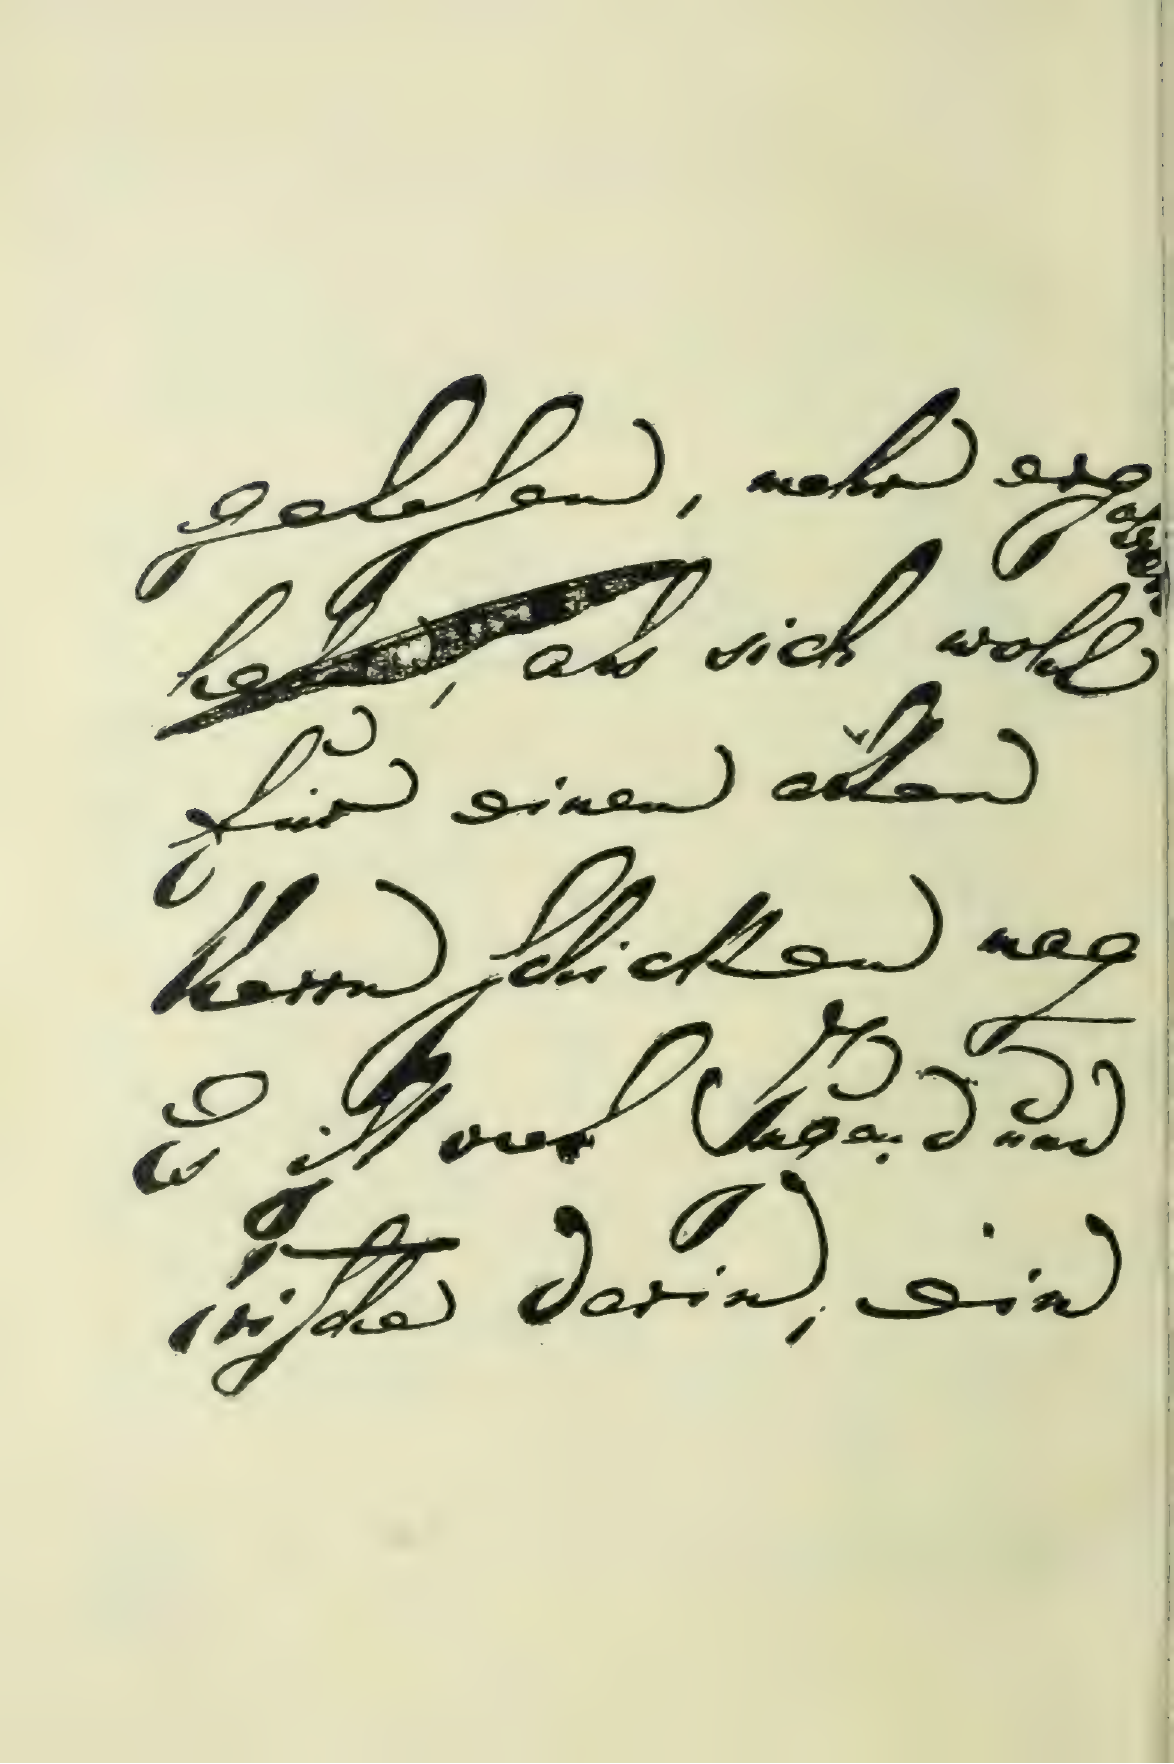 gelesen, mehr erg
, als sich wohl
für einen alten
Herrn schicken mag
Es ist viel Jugend und
Frische darin, ein